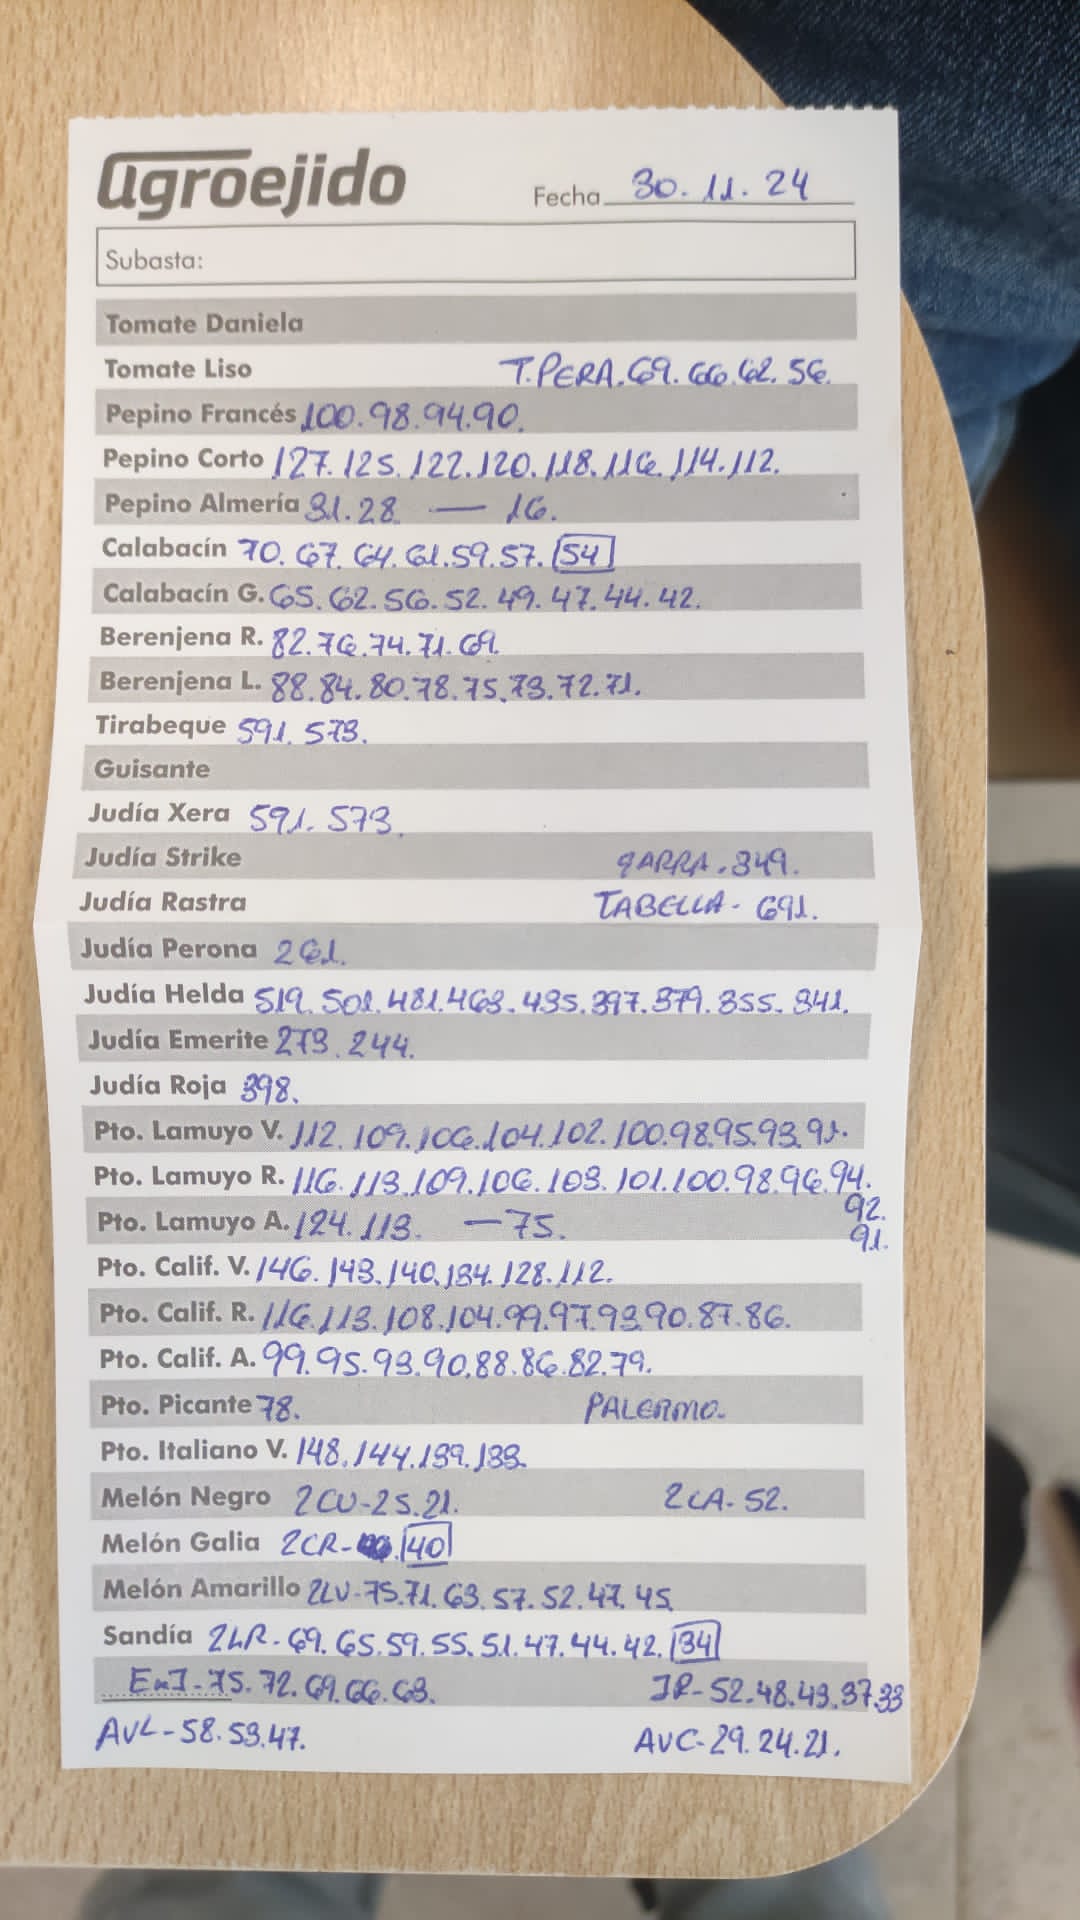 agroejido
Fecha 30.11.24
Subasta:
Tomate Daniela
Tomate Liso T.PERA.69.66.62.56.
Pepino Francés 100.98.94.90.
Pepino Corto 127.125.122.120.118.116.114.112.
Pepino Almería 31.28 — 16.
Calabacín 70.67.64.61.59.57.54
Calabacín G. 65.62.56.52.49.47.44.42.
Berenjena R. 82.76.74.71.69.
Berenjena L. 88.84.80.78.75.73.72.71.
Tirabeque 591.573.
Guisante
Judía Xera 591.573.
Judía Strike GARRA.349.
Judía Rastra TABELLA-691.
Judía Perona 261.
Judía Helda 519.501.481.463.435.397.379.355.341.
Judía Emerite 273.244.
Judía Roja 398.
Pto. Lamuyo V. 112.109.106.104.102.100.98.95.93.91.
Pto. Lamuyo R. 116.113.109.106.103.101.100.98.96.94.
92.
Pto. Lamuyo A. 124.113. —75.
91.
Pto. Calif. V. 146.143.140.134.128.112.
Pto. Calif. R. 116.113.108.104.99.97.93.90.87.86.
Pto. Calif. A. 99.95.93.90.88.86.82.79.
Pto. Picante 78. PALERMO.
Pto. Italiano V. 148.144.139.133.
Melón Negro 2CU-25.21. 2CA-52.
Melón Galia 2CR-.40
Melón Amarillo 2LV-75.71.63.57.52.47.45.
Sandía 2LR-69.65.59.55.51.47.44.42.34
EnJ-75.72.69.66.63. JR-52.48.43.37.33
AVL-58.53.47. AVC-29.24.21.